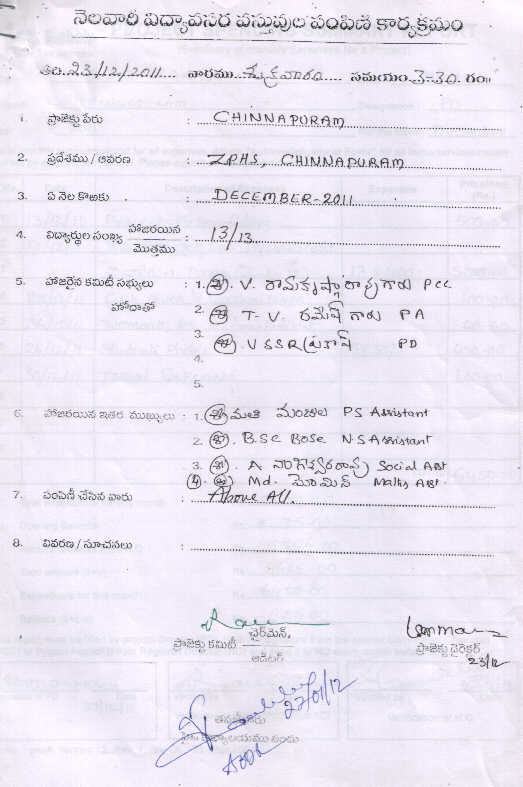 నెలవారి విద్యావసర వస్తువుల పంపిణి కార్యక్రమం
తేది.23/12/2011.... వారము.శుక్రవారం.... సమయం.3-30.గం॥
1. ప్రాజెక్టు పేరు : CHINNAPURAM
2. ప్రదేశము / ఆవరణ : ZPHS, CHINNAPURAM
3. ఏ నెల కొఱకు : DECEMBER-2011
4. విద్యార్థుల సంఖ్య హాజరయిన / మొత్తము : 13/13
5. హాజరైన కమిటీ సభ్యులు : 1. శ్రీ. V. రామకృష్ణారావు గారు PCC
హోదాతో 2. శ్రీ T. V. రమేష్ గారు PA
3. శ్రీ V S S R ప్రకాష్ PD
4.
5.
6. హాజరయిన ఇతర ముఖ్యులు : 1. శ్రీమతి మంజుల PS Assistant
2. శ్రీ. B.Sc Bose N.S Assistant
3. శ్రీ. A నాగేశ్వరరావు Social Asst
4. శ్రీ. Md. మోమిన్ Maths Asst.
7. పంపిణీ చేసిన వారు : Above All.
8. వివరణ / సూచనలు :
ప్రాజెక్టు కమిటీ ఛైర్మన్. / ఆడిటర్
ప్రాజెక్టు డైరెక్టర్
23/12
27/01/12